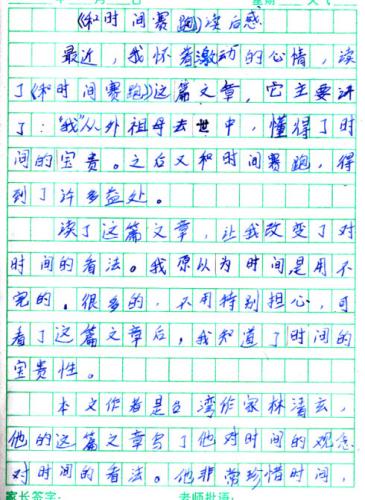 《和时间赛跑》读后感
最近，我怀着激动的心情，读
了《和时间赛跑》这篇文章，它主要讲
了："我"从外祖母去世中，懂得了时
间的宝贵。之后又和时间赛跑，得
到了许多益处。
读了这篇文章，让我改变了对
时间的看法。我原以为时间是用不
完的，很多的，不用特别担心，可
看了这篇文章后，我知道了时间的
宝贵性。
本文作者是台湾作家林清玄，
他的这篇文章写了他对时间的观念
对时间的看法。他非常珍惜时间，
家长签字： 老师批语：